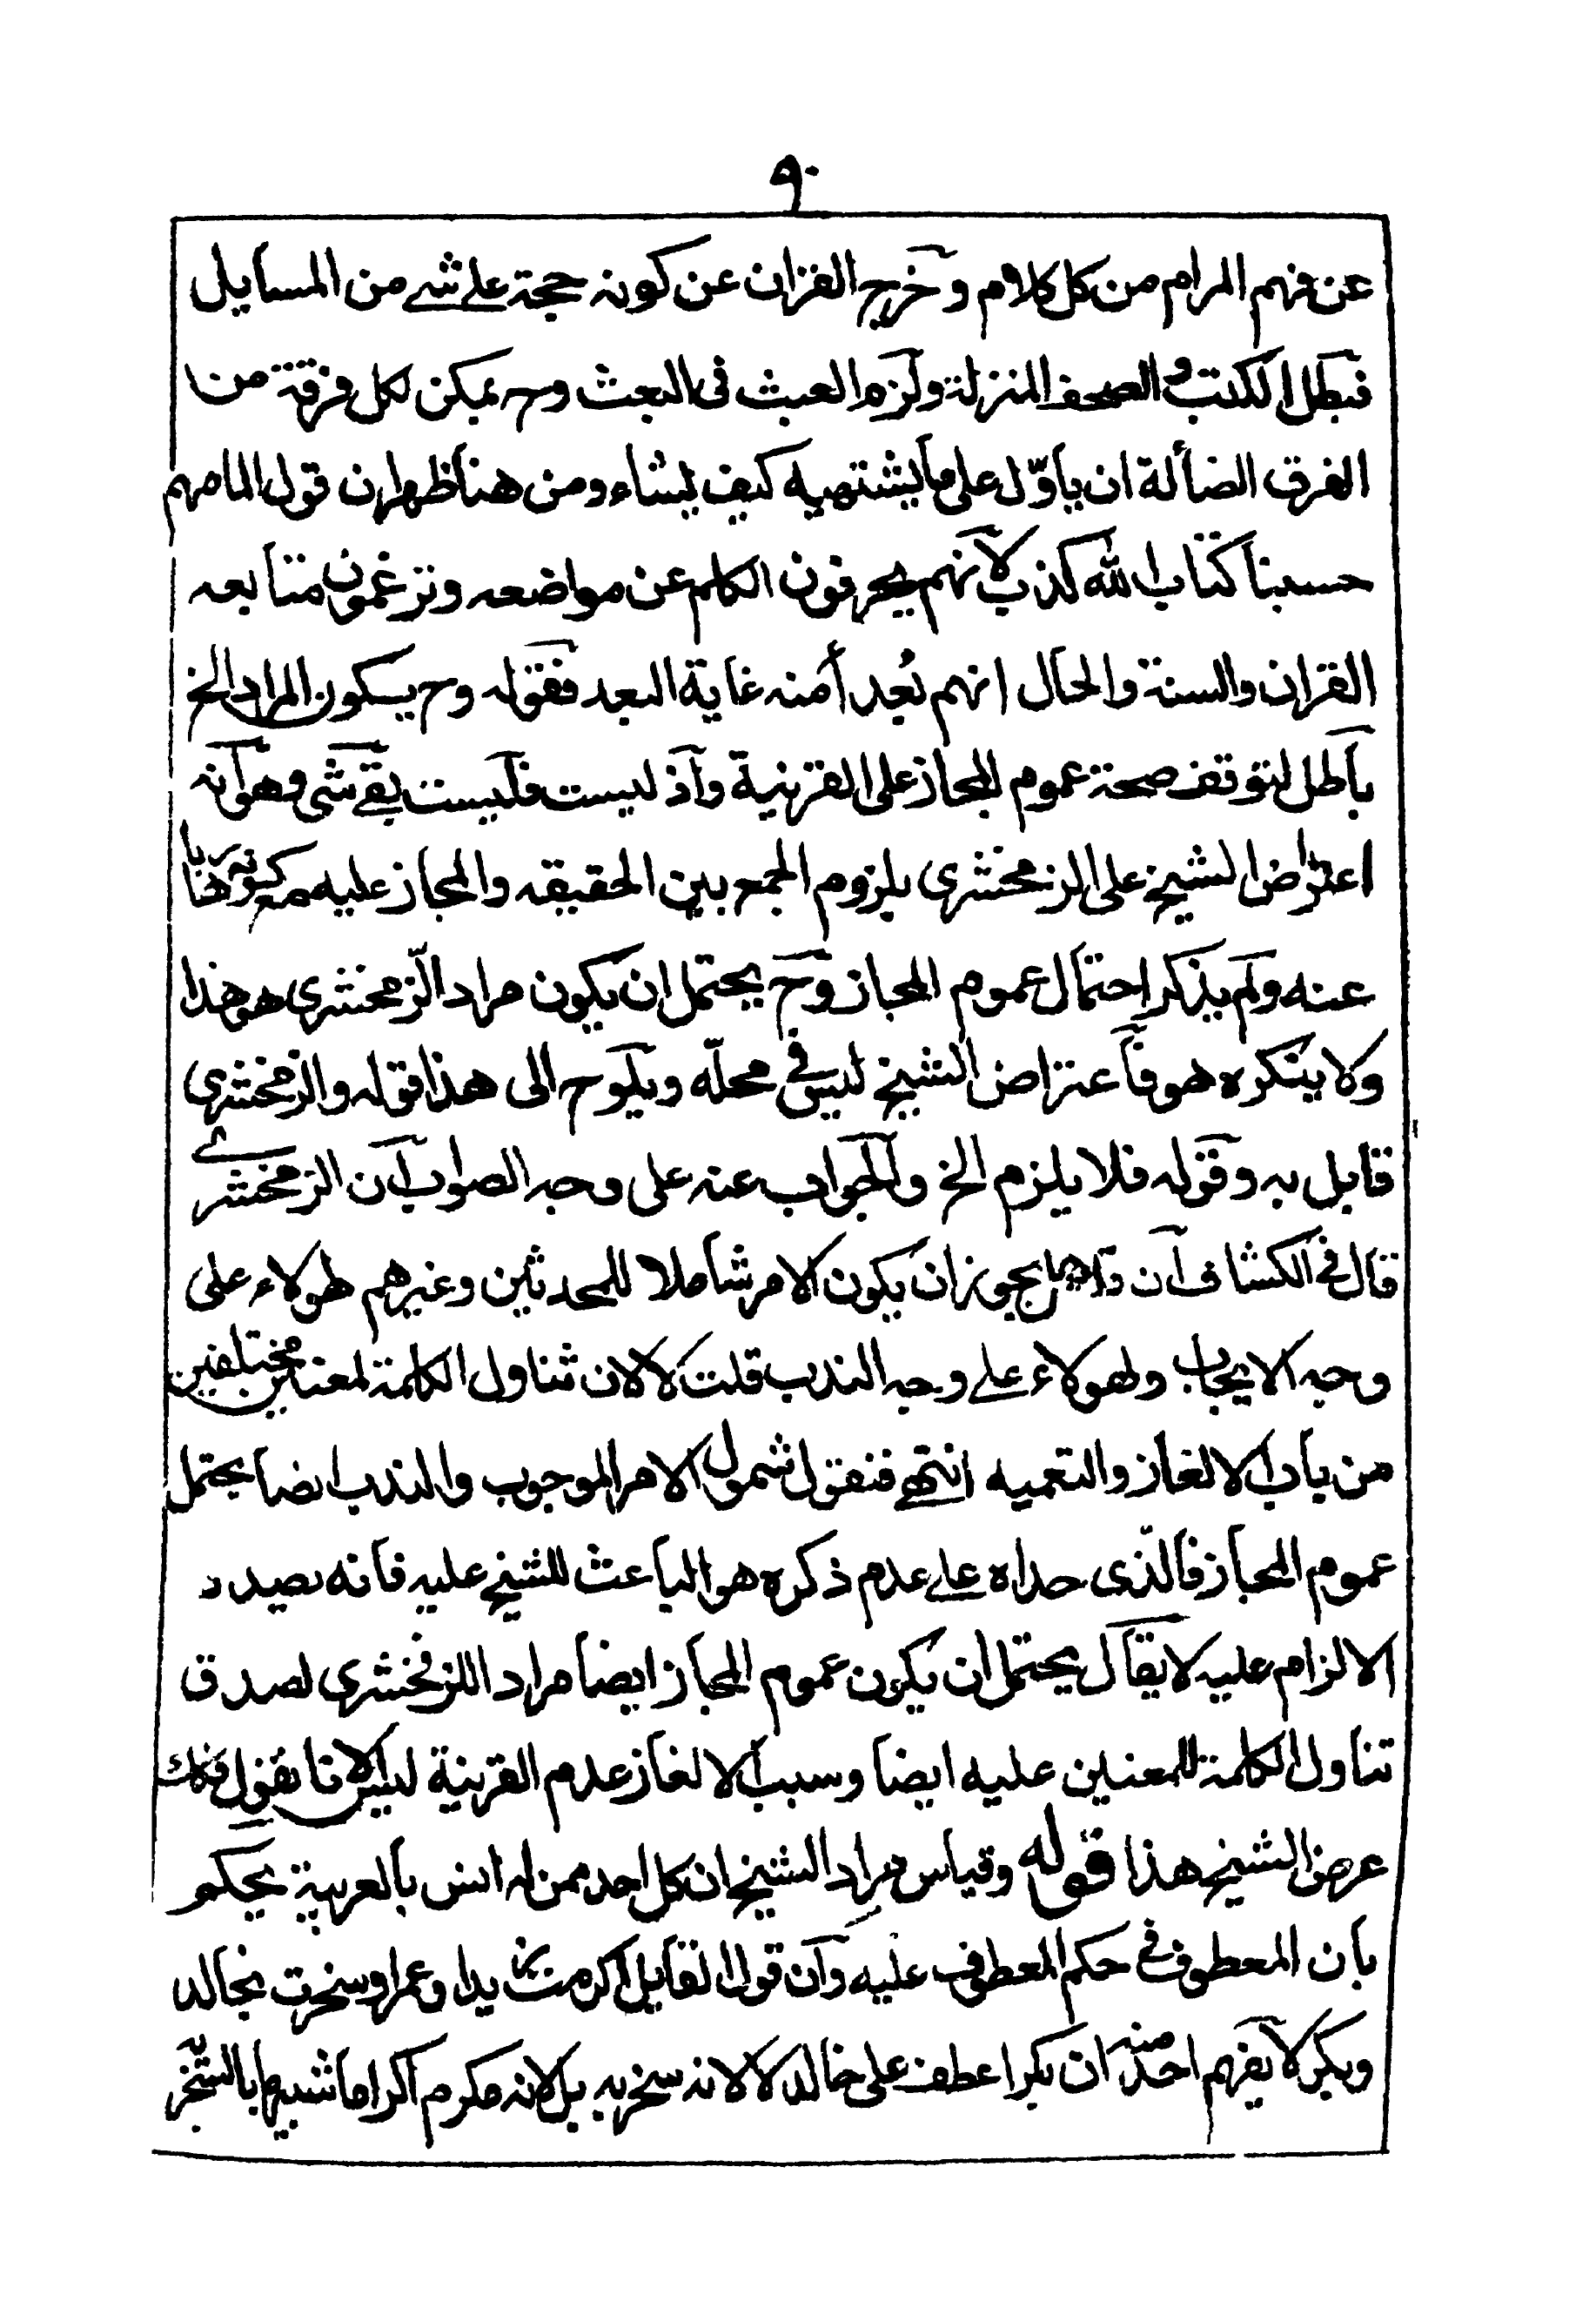 ٩٠
عن فهم المرام من كل كلام وخرج القران عن كونه حجة على شے من المسايل
فبطل الكتب والصحف المنزلة ولزم العبث فى البعث وح يمكن لكل فرقة من
الفرق الضألة ان ياوّل على ما يشتهيه كيف يشاء ومن هنا ظهر ان قول امامهم
حسبنا كتاب الله كذب لانهم يحرفون الكلم عن مواضعه وتزعمون متابعه
القران والسنة والحال انهم بُعد أمنه غاية البعد فقوله وح يسكون المراد الخ
باطل لتوقف صحة عموم المجاز على القرنية واذ ليست فليست بقے شى وهو انه
اعتراض الشيخ على الزمخشرى بلزوم الجمع بين الحقيقه والمجاز عليه مع كونه هاربا
عنه ولم يذكر احتمال عموم المجاز وح يحتمل ان يكون مراد الزمخشرى هو هذا
ولا ينكره هو فاعتراض الشيخ ليس فى محلّه ويلوح الى هذا قوله والزمخشرى
قايل به وقوله فلا يلزم الخ والجواب عنه على وجه الصواب ان الزمخشرے
قال فى الكشاف ان يجوز ان يكون الامر شاملا للمحدثين وغيرهم لهولاء على
وجه الايجاب ولهولاء على وجه الندب قلت لا لان تناول الكلمة لمعنين مختلفين
من باب الالغاز والتعميه انتهے فنقول شمول الامر الموجوب والندب ايضا يحتمل
عموم المجاز فالذى حداه علے عدم ذكره هو الباعث للشيخ عليه فانه بصدد
الالزام عليه لا يقال يحتمل ان يكون عموم المجاز ايضا مراد اللزمخشرى لصدق
تناول الكلمة للمعنين عليه ايضا وسبب الالغاز عدم القرنية ليس الا فانقول فذلك
عرض الشيخ هذا قوله وقياس مراد الشيخ ان كل احد ممن له انس بالعربية يحكم
بان المعطوف فى حكم المعطوف عليه وان قول القايل اكرمت زيدا وعمرا وسخرت بخالد
وبكر لا يفهم احد منه ان بكرا عطف على خالد لا لانه سخر به بل لانه مكرم اكراما شبيها بالتسخر